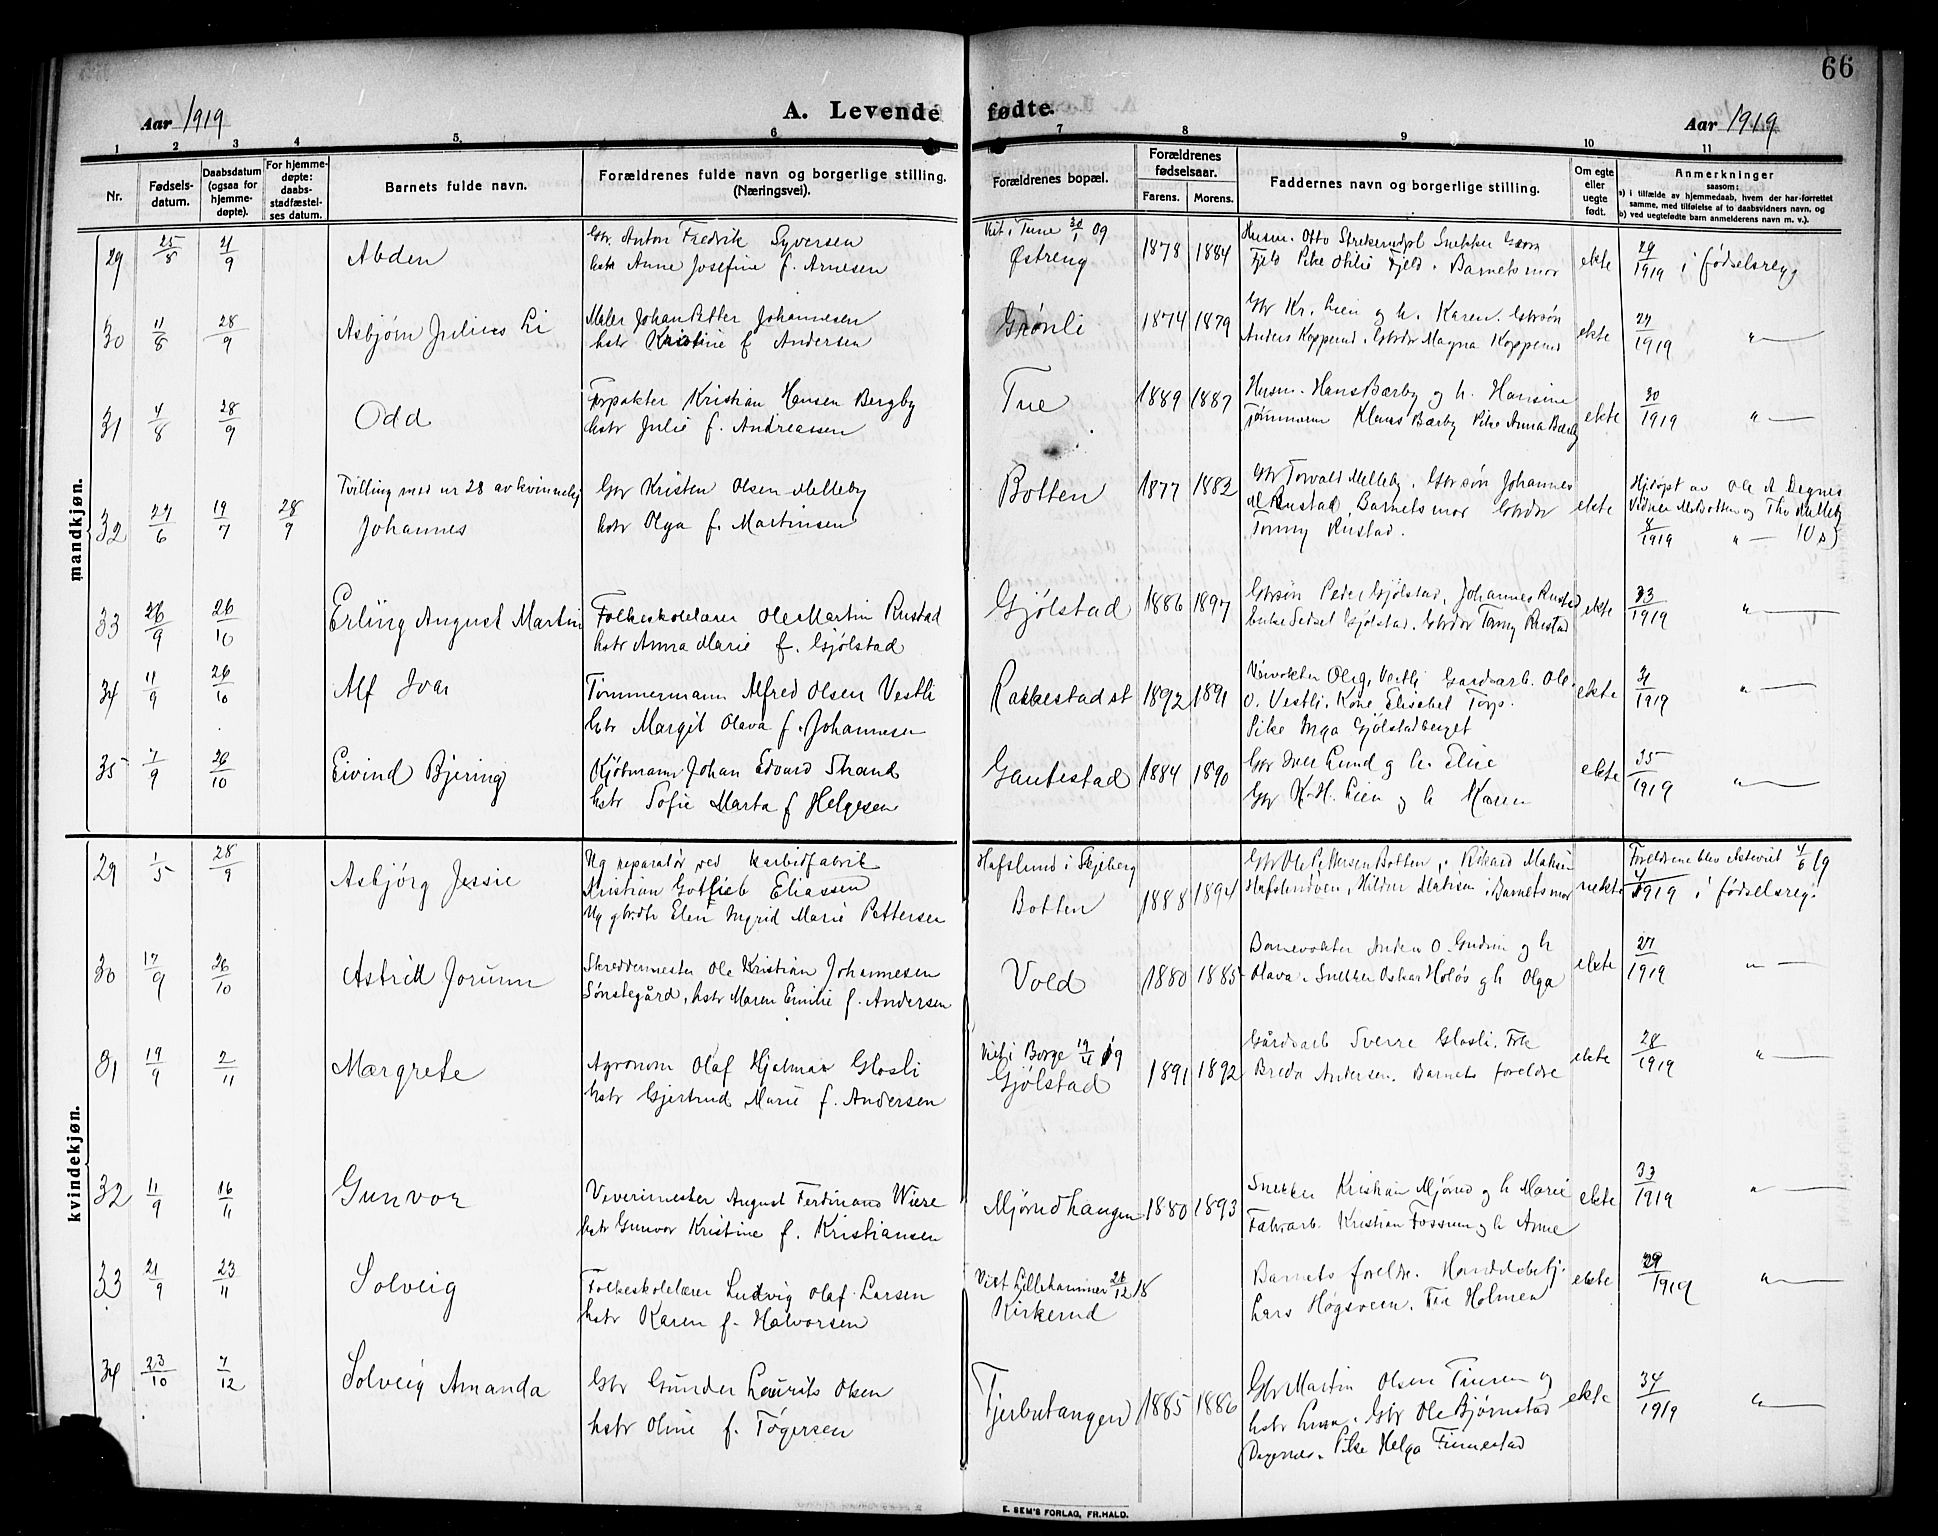 66
Aar 1919
A. Levende fødte.
Aar 1919
1 2 3 4 5. 6 7 8 9 10 11
Nr.
Fødsels-
datum.
Daabsdatum
(ogsaa for
hjemme-
døpte).
For hjemme-
døpte:
daabs-
stadfæstel-
ses datum.
Barnets fulde navn.
Forældrenes fulde navn og borgerlige stilling.
(Næringsvei).
Forældrenes bopæl.
Forældrenes
fødselsaar.
Farens. Morens.
Faddernes navn og borgerlige stilling.
Om egte
eller
uegte
født.
Anmerkninger
saasom:
a) i tilfælde av hjemmedaab, hvem der har forrettet
samme, med tilføielse af to daabsvidners navn, og
b) ved uegtefødte barn anmelderens navn m. v.).
mandkjøn.
29 25/8 21/9 Abden
Gbr. Anton Fredrik Syversen
hstr Anne Josefine f. Arnesen
Vit. i Tune 30/1 09
Østreng
1878 1884
Husm. Otto
Fjeld Pike Otilie Fjeld. Barnets mor
ekte
29/1919 i fødselsreg
30 11/8 28/9 Asbjørn Julius Li
Maler Johan Petter Johannesen
hstr Kristine f Andersen
Grønli
1874 1879
Gbr Kr. Lien og h. Karen. Gbrsøn
Anders Kopperud. Gbrdtr Magna Kopperud
ekte
27/1919 "—
31 4/8 28/9 Odd
Forpakter Kristian Hansen Bergby
hstr Julie f. Andreassen
Tue
1889 1887
Husm. Hans Bærby og h. Hansine
Tømmerm Klaus Bærby Pike Anna Bærby
ekte
30/1919 "—
32 27/6 19/7 28/9
Tvilling med nr 28 av kvinnekj
Johannes
Gbr Kristen Olsen Melleby
hstr Olga f. Martinsen
Botten
1877 1882
Gbr Torvald Melleby. Gbrsøn Johannes
Rustad, Barnets mor Gbrdtr
Tonny Rustad.
ekte
Hjdøpt av Ole A Degnes
Vidner og Melleby
8/1919 "—
33 26/9 26/10 Erling August Martin
Folkeskolelærer Ole Martin Rustad
hstr Anna Marie f. Gjølstad
Gjølstad
1886 1897
Gbrsøn Peder Gjølstad, Johannes Rustad
Enke Gjølstad. Gbrdtr Tonny Rustad
ekte
33/1919 "—
34 11/9 26/10 Alf Ivar
Tømmermann Alfred Olsen Vestli
hstr Margit Olava f. Johannesen
Rakkestad st
1892 1891
Veivokter Ole G. Vestli Gardsarb. Ole
O. Vestli. Kone Elisabet Torp.
Pike Inga Gjølstadberget
ekte
31/1919 "—
35 7/9 26/10 Eivind Bjering
Kjøbmann Johan Edvard Strand
hstr Sofie Marta f Helgesen
Gautestad
1884 1890
Gbr Iver Lund og h. Elise
Gbr K. H. Lien og h Karen
ekte
35/1919 "—
kvindekjøn.
29 1/5 28/9 Asbjørg Jessie
Ug reparatør ved karbidfabrik
Kristian Gotlieb Eliassen
Ug gbrdtr Elen Ingrid Marie Pettersen
Hafslund i Skjeberg
Botten
1888 1894
Gbr Ole Pettersen Botten, Rikard
Hafslundveen, Hilder Barnets mor
uekte
Foreldrene blev ekteviet 4/6 19
4/1919 i fødselsreg.
30 17/9 26/10 Astrid Jorunn
Skreddermester Ole Kristian Johannesen
Sønstegård, hstr Maren Emilie f. Andersen
Vold
1880 1885
Banevokter Anders O. Gudim og h
Olava. Snekker Oskar Holøs og h Olga
ekte
27/1919 "—
31 19/9 2/11 Margrete
Agronom Olaf Hjalmar Glosli
hstr Gjertrud Marie f. Andersen
Vit i Borge 19
Gjølstad
1891 1892
Gårdsarb Sverre Glosli. Frk
Breda Andersen. Barnets foreldre
ekte
28/1919 "—
32 11/9 16/11 Gunvor
Vevermester August Ferdinand Wiere
hstr Gunvor Kristine f. Kristiansen
Mjørudhaugen
1880 1893
Snekker Kristian Mjørud og h Marie
Fabrarb. Kristian Fossum og h Anne
ekte
33/1919 "—
33 21/9 23/11 Solveig
Folkeskolelærer Ludvig Olaf Larsen
hstr Karen f. Halvorsen
Viet Lillehammer 26/12 18
Kirkerud
Barnets foreldre. Handelsbetj.
Lars Høgsveen. Frk Holmen
ekte
29/1919 "—
34 23/10 7/12 Solveig Amanda
Gbr Gunder Laurits Olsen
hstr Oline f. Tøgersen
Tjerbutangen
1885 1886
Gbr Martin Olsen og
hstr. Gbr Ole Bjørnstad
Degernes. Pike Helga Finnestad
ekte
34/1919 "—
E. SEM'S FORLAG, FR.HALD.